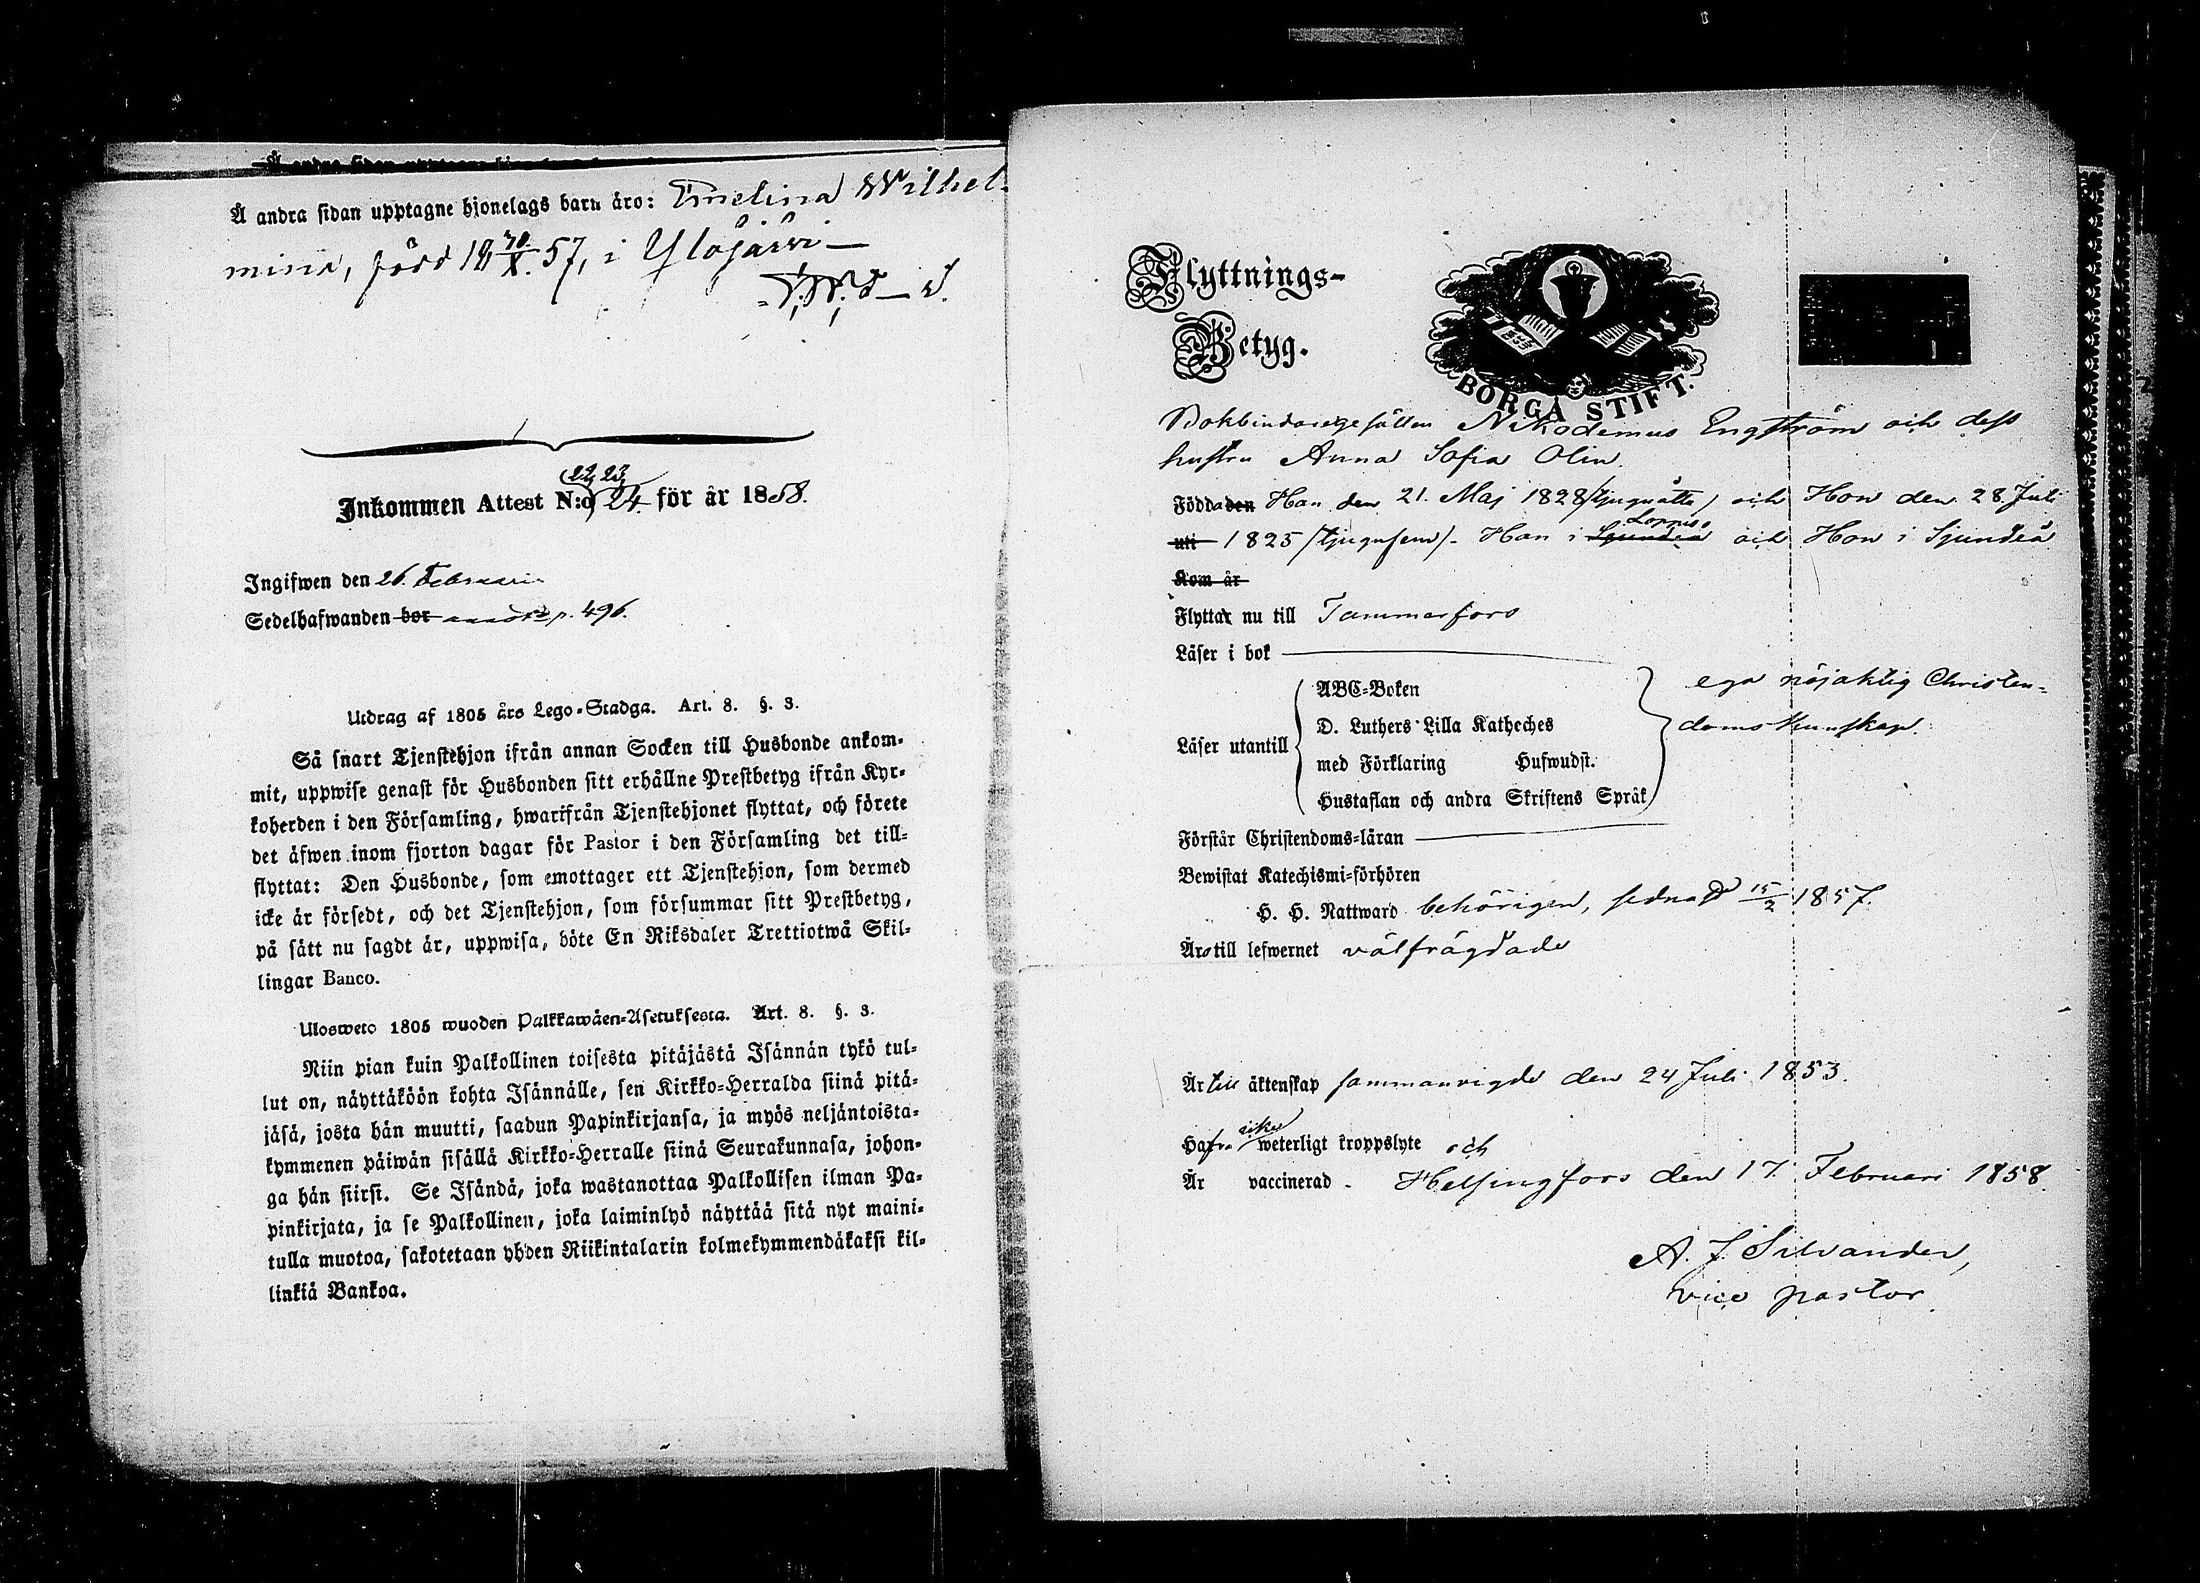 Å andra sidan upptagne hjonelags barn äro: Emelina Wilhel-
mina, född 18 10/X 57, i Ylöjärvi —
Inkommen Attest N:o 22, 23, 24 för år 1858.
Ingifwen den 26. Februarii
Sedelhafwanden bor p. 496.
Utdrag af 1805 års Lego-Stadga. Art. 8. §. 3.
Så snart Tjenstehjon ifrån annan Socken till Husbonde ankom-
mit, uppwise genast för Husbonden sitt erhållne Prestbetyg ifrån Kyr-
koherden i den Församling, hwarifrån Tjenstehjonet flyttat, och förete
det äfwen inom fjorton dagar för Pastor i den Församling det till-
flyttat: Den Husbonde, som emottager ett Tjenstehjon, som dermed
icke är försedt, och det Tjenstehjon, som försummar sitt Prestbetyg,
på sätt nu sagdt är, uppwisa, böte En Riksdaler Trettiotwå Skil-
lingar Banco.
Ulosweto 1805 wuoden Palkkawäen-Asetuksesta. Art. 8. §. 3.
Niin pian kuin Palkollinen toisesta pitäjästä Isännän tykö tul-
lut on, näyttäköön kohta Isännälle, sen Kirkko-Herralda siinä pitä-
jäsä, josta hän muutti, saadun Papinkirjansa, ja myös neljäntoista-
kymmenen päiwän sisällä Kirkko-Herralle siinä Seurakunnasa, johon-
ga hän siirsi. Se Isändä, joka wastanottaa Palkollisen ilman Pa-
pinkirjata, ja se Palkollinen, joka laiminlyö näyttää sitä nyt maini-
tulla muotoa, sakotetaan yhden Riikintalarin kolmekymmendäkaksi kil-
linkiä Bankoa.
Flyttnings-
Betyg.
BORGÅ STIFT.
Bokbindaregesällen Nikodemus Engström och dess
hustru Anna Sofia Olin.
Födda den Han den 21. Maj 1828 /tjuguåtta/ och Hon den 28 Juli
uti 1825 /tjugufem/. Han i Sjundeå Loppis och Hon i Sjundeå
Kom år
Flyttar nu till Tammerfors
Läser i bok
Läser utantill
ABC-Boken
D. Luthers Lilla Katheches
med Förklaring Hufwudst.
Hustaflan och andra Skriftens Språk
ega nöjaktig Christen-
doms kunskap.
Förstår Christendoms-läran
Bewistat Katechismi-förhören
H. H. Nattward behörigen, sednast 15/2 1857.
Äro till lefwernet välfrägdade
Är till äktenskap sammanvigde den 24 Juli 1853.
Hafva icke weterligt kroppslyte och
Är vaccinerad - Helsingfors den 17. Februari 1858.
A. J. Silvander,
vice pastor.